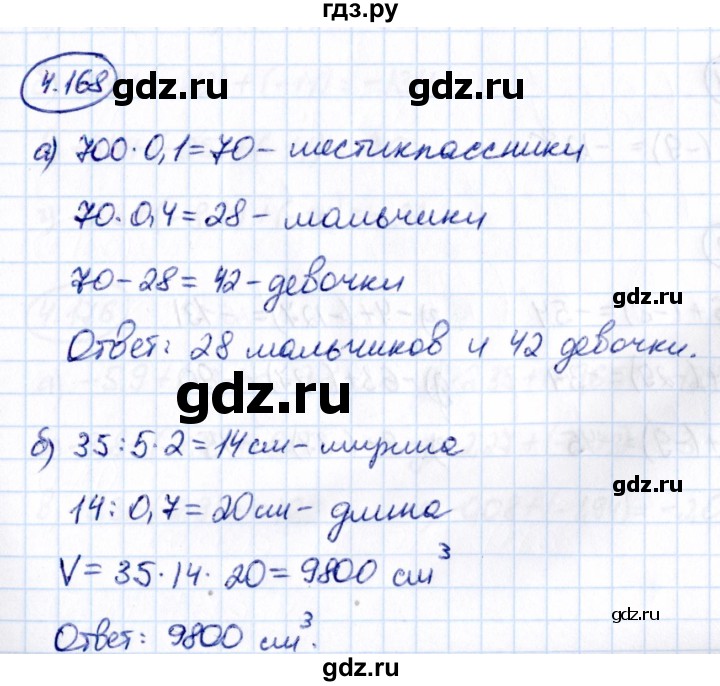 гдз.ру
4.168
gdz.ru
gdz.ru
а) 700·0,1=70- шестиклассники
70·0,4=28- мальчики
70-28=42-девочки
gdz.ru
Ответ: 28 мальчиков и 42 девочки.
gdz.ru
б) 35:5·2=14см-ширина
gdz.ru
14:0,7=20см- длина
V=35·14·20=9800 см³
gdz.ru
Ответ: 9800 см³.
gdz.ru